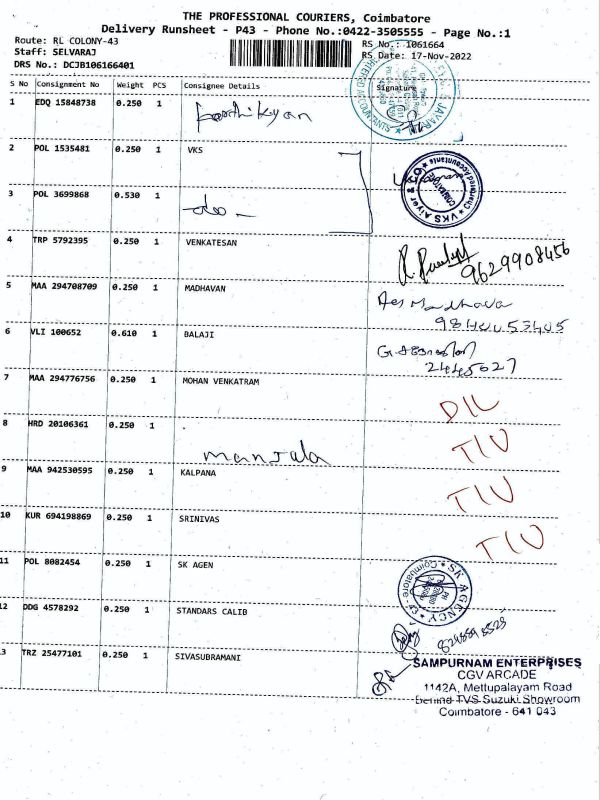 THE PROFESSIONAL COURIERS, Coimbatore
Delivery Runsheet - P43 - Phone No.:0422-3505555 - Page No.:1
Route: RL COLONY-43
Staff: SELVARAJ
DRS No.: DCJB106166401
RS No.: 1061664
RS Date: 17-Nov-2022
S No Consignment No Weight PCS Consignee Details Signature
1 EDQ 15848738 0.250 1
2 POL 1535481 0.250 1 VKS
3 POL 3699868 0.530 1 -do-
VKS Aiyer & Co
Chartered Accountants
COIMBATORE
4 TRP 5792395 0.250 1 VENKATESAN
9629908456
5 MAA 294708709 0.250 1 MADHAVAN
9840053405
6 VLI 100652 0.610 1 BALAJI
2445027
7 MAA 294776756 0.250 1 MOHAN VENKATRAM DIL
8 HRD 20106361 0.250 1 . TIU
manjala
9 MAA 942530595 0.250 1 KALPANA TIU
10 KUR 694198869 0.250 1 SRINIVAS TIU
11 POL 8082454 0.250 1 SK AGEN
SK AGENCY
Coimbatore-43
12 DDG 4578292 0.250 1 STANDARS CALIB
13 TRZ 25477101 0.250 1 SIVASUBRAMANI
SAMPURNAM ENTERPRISES
CGV ARCADE
1142A, Mettupalayam Road
Behind TVS Suzuki Showroom
Coimbatore - 641 043